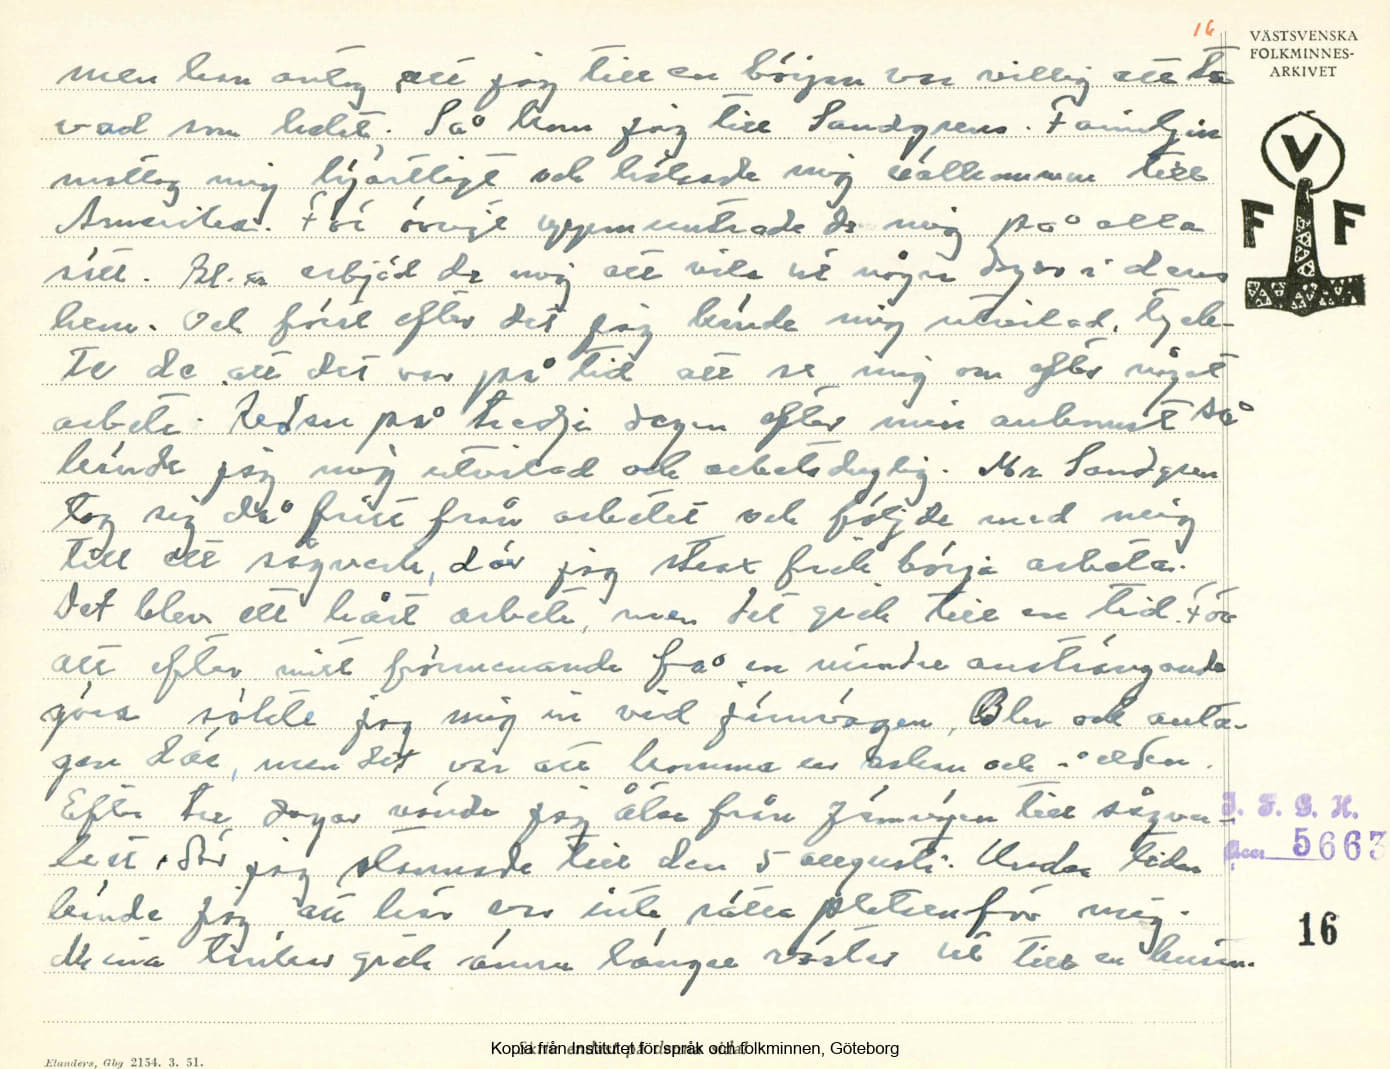 16
VÄSTSVENSKA
FOLKMINNES-
ARKIVET
men han antog att jag till en början var villig att ta
vad som helst. Så kom jag till Sandgrens. Familjen
mottog mig hjärtligt och hälsade mig välkommen till
Amerika. För övrigt uppmuntrade de mig på alla
sätt. Bl. a. erbjöd de mig att vila ut några dagar i deras
hem. Och först efter det jag kände mig utvilad, tyck-
te de att det var på tid att se mig om efter något
arbete. Redan på tredje dagen efter min ankomst så
kände jag mig utvilad och arbetsduglig. Mr Sandgren
tog sig då fritt från arbetet och följde med mig
till ett sågverk, där jag strax fick börja arbeta.
Det blev ett hårt arbete, men det gick till en tid. För
att efter mitt förmenande få en mindre ansträngande
göra sökte jag mig in vid järnvägen. Blev ock anta-
gen där, men det var att komma ur askan och i elden.
Efter tre dagar vände jag åter från järnvägen till sågver-
ket, där jag stannade till den 5 augusti. Under tiden
kände jag att här var inte rätta platsen för mig.
Mina tankar gick ännu längre väster ut till en kusin.
V
F F
I. F. G. H.
Acc. 5663
16
Elanders, Gbg 2154. 3. 51.
Kopia från Institutet för språk och folkminnen, Göteborg